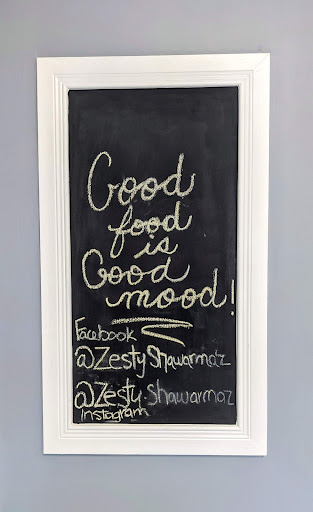 Good
food
is
Good
mood!
Facebook
@Zesty Shawarmaz
@Zesty.Shawarmaz
instagram